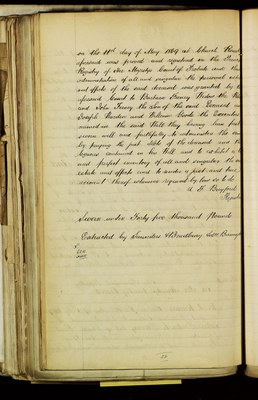 on the 11th day of May 1869 at Church Road
aforesaid was proved and registered in the
Registry of Her Majestys Court of Probate and
administration of all and singular the personal
and effects of the said deceased was granted by
aforesaid Court to Barbara Widow the
and John the Son of the said Deceased
Joseph and William the Executors
named in the said Will they having been first
sworn well and faithfully to administer the
by paying the just debts of the deceased and the
legacies contained in his Will and to exhibit a
and perfect inventory of all and singular the
estate and effects and to render a just and true
account thereof whenever required by law so to do
Sworn under Forty five thousand Pounds
Extracted by Saunders & Bradbury